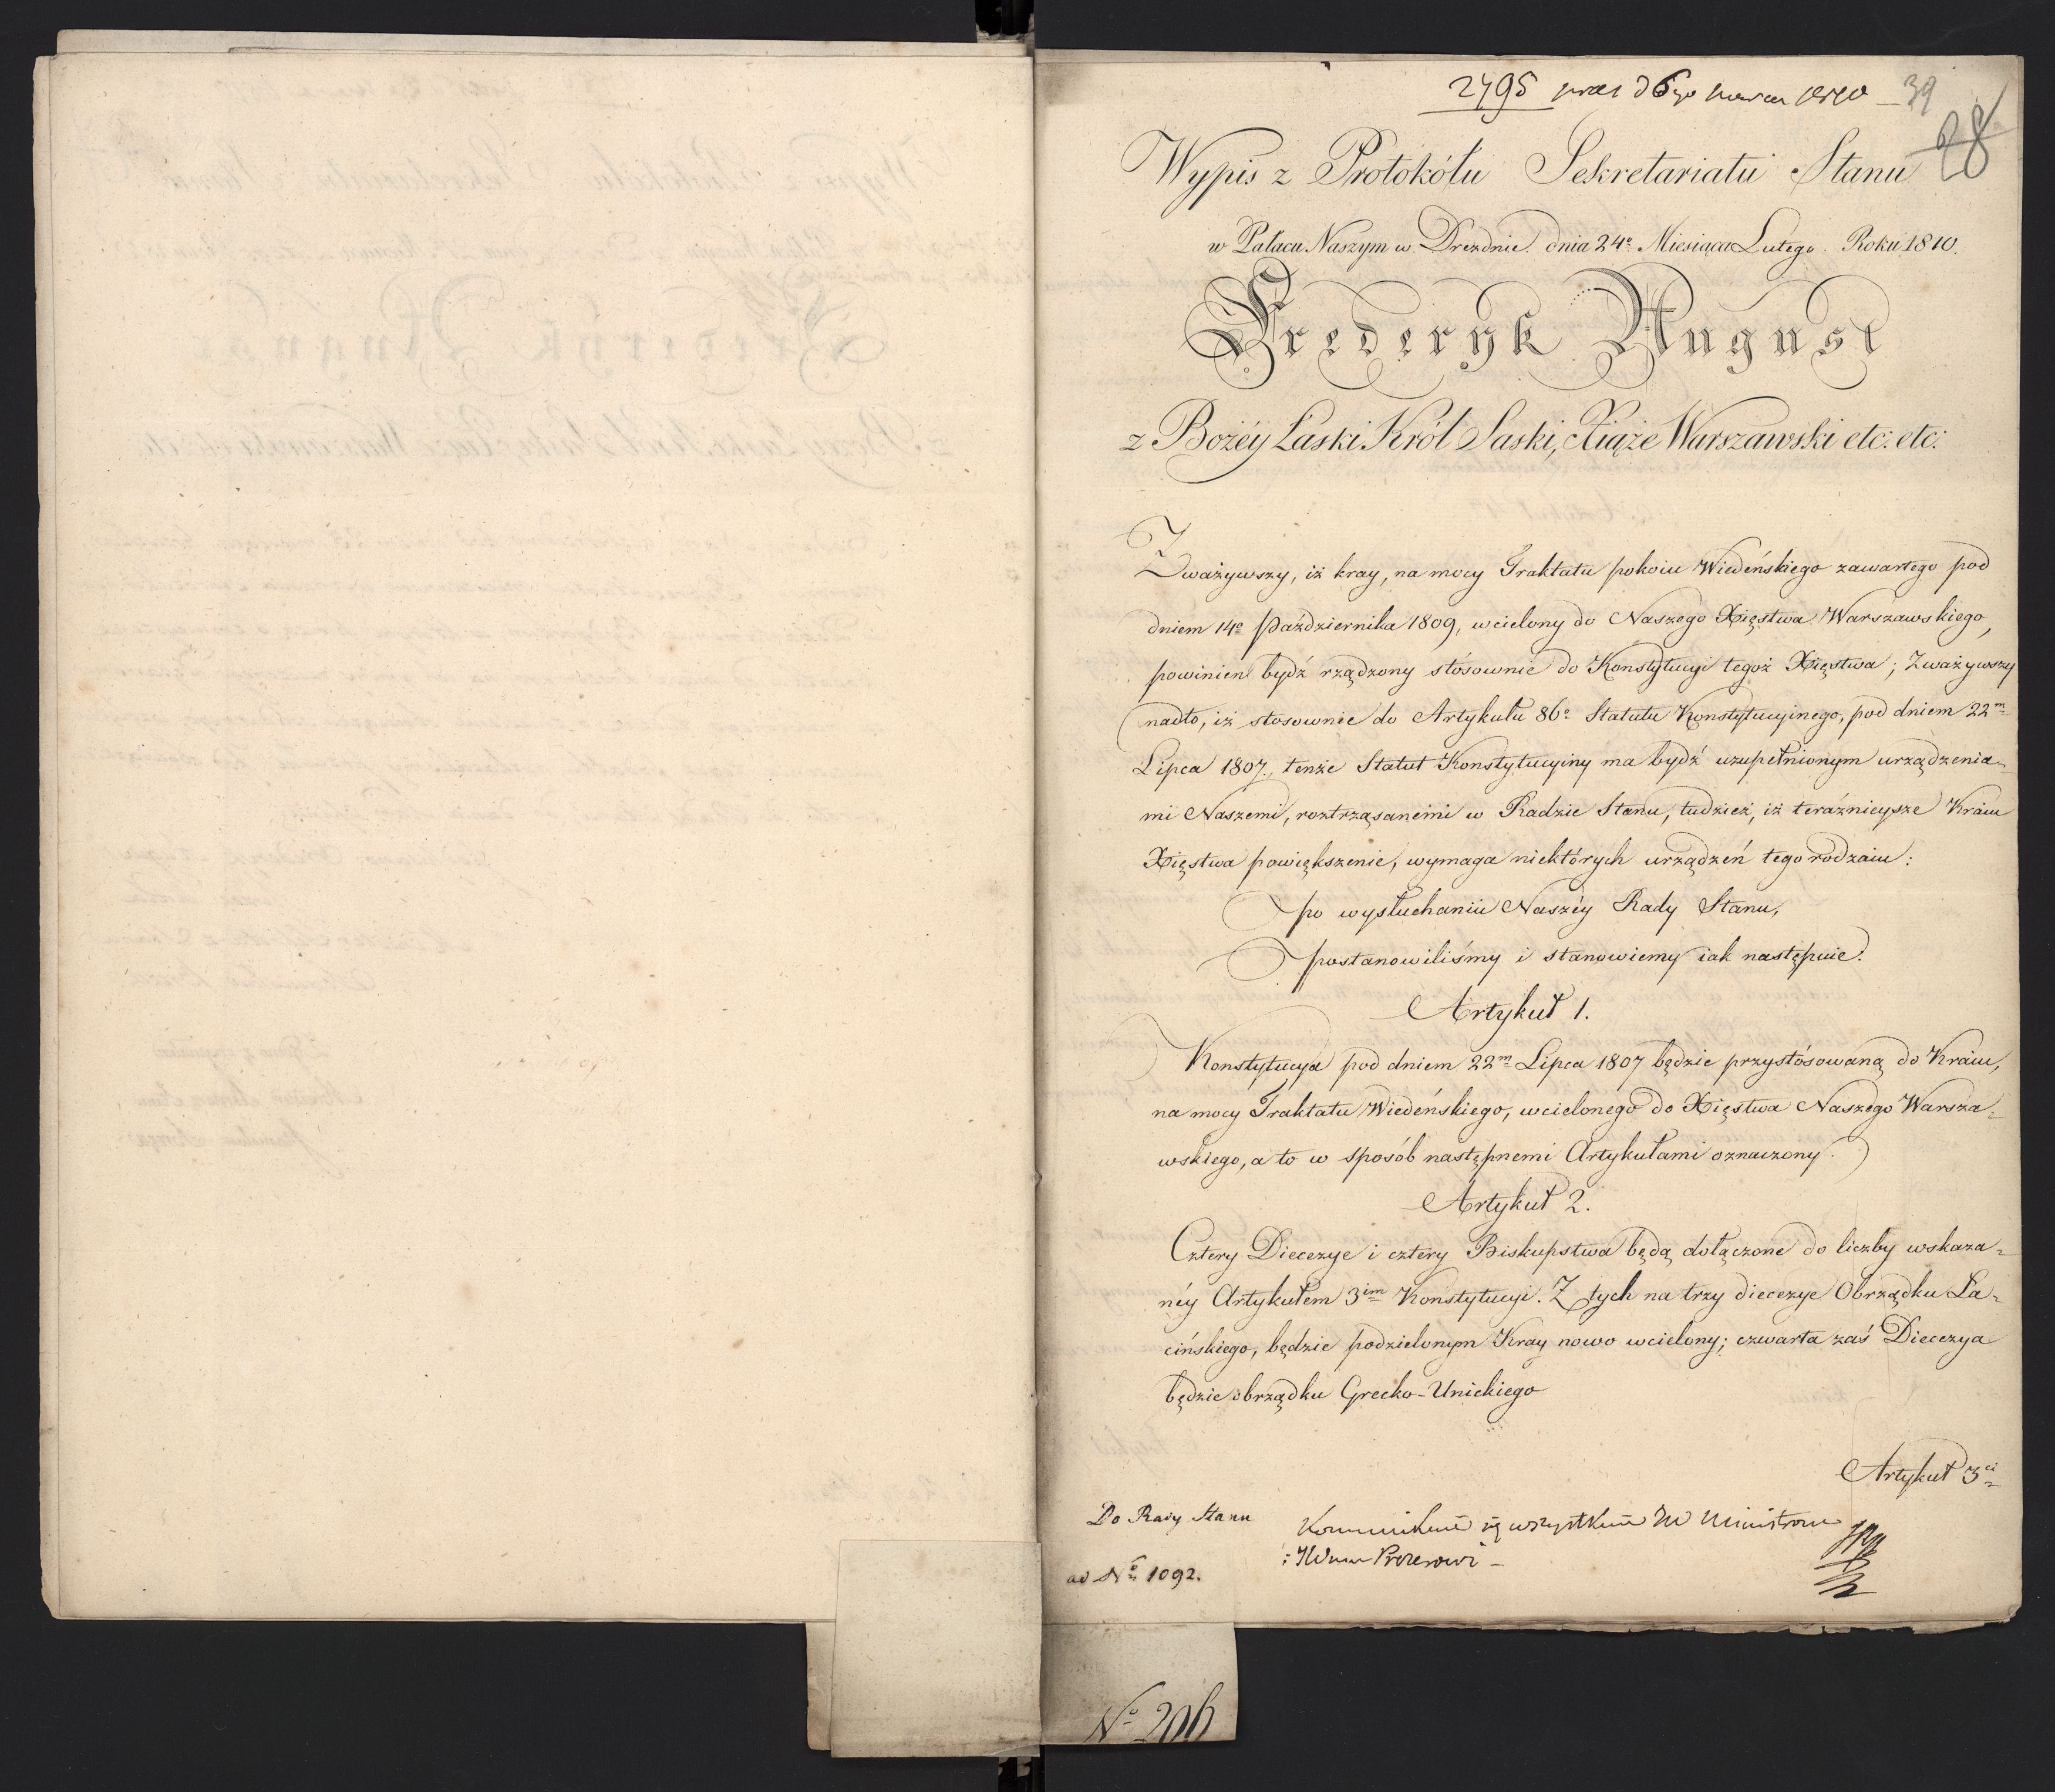 2795 prae d 6go marca 1810 39
28
Wypis z Protokółu Sekretariatu Stanu
w Pałacu Naszym w Dreznie dnia 24º Miesiąca Lutego Roku 1810.
Frederyk August
z Bożéy Łaski Król Saski, Xiąże Warszawski etc: etc:
Zważywszy, iż kray, na mocy Traktatu pokoiu Wiedeńskiego zawartego pod
dniem 14º Października 1809, wcielony do Naszego Xięstwa Warszawskiego,
powinien bydź rządzony stósownie do Konstytucyi tegoż Xięstwa; Zważywszy
nadto, iż stosownie do Artykułu 86º Statutu Konstytucyinego, pod dniem 22m
Lipca 1807., tenże Statut Konstytucyiny ma bydź uzupełnionym urządzenia=
mi Naszemi, roztrząsanemi w Radzie Stanu, tudzież, iż teraźnieysze Kraiu
Xięstwa powiększenie, wymaga niektórych urządzeń tego rodzaiu:
po wysłuchaniu Naszéy Rady Stanu,
postanowiliśmy i stanowiemy iak następuie.
Artykuł 1.
Konstytucya pod dniem 22m Lipca 1807 będzie przystósowaną do Kraiu,
na mocy Traktatu Wiedeńskiego, wcielonego do Xięstwa Naszego Warsza=
wskiego, a to w sposób następnemi Artykułami oznaczony.
Artykuł 2.
Cztery Diecezye i cztery Biskupstwa będą dołączone do liczby wskaza=
néy Artykułem 3im Konstytucyi. Z tych na trzy diecezye Obrządku Ła=
cińskiego, będzie podzielonym Kray nowo wcielony; czwarta zaś Diecezya
będzie obrządku Grecko-Unickiego
Artykuł 3ci
Do Rady Stanu
ad Nº 1092.
się wszystkim Ministrom
Nº 206